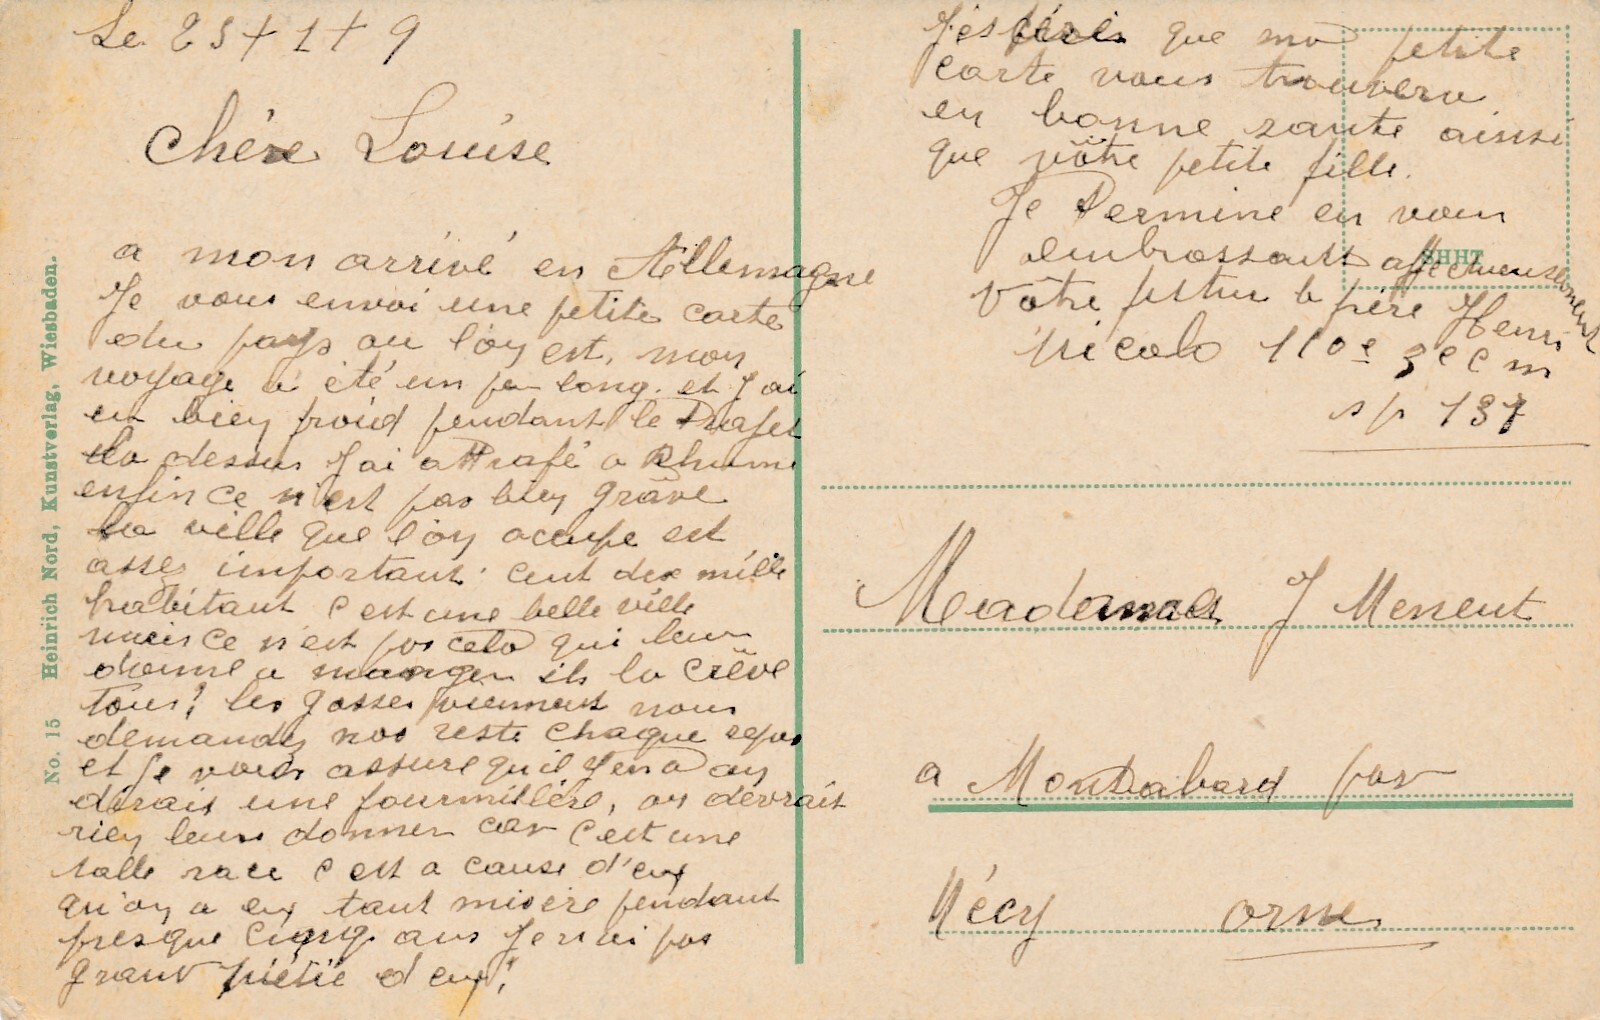 Le 25 + 1 + 9
Chére Louise
a mon arrivé en Allemagne
Je vous envoi une petite carte
du pays ou l'on est, mon
voyage a été un peu long. et J'ai
eu bien froid pendant le Trajet
la dessus J'ai attrapé a Rhume
enfin ce n'est pas bien grâve
La ville que l'on occupe est
assez important cent dix mille
habitant c'est une belle ville
mais ce n'est pas cela qui leur
donne a manger ils la crêve
Tous! les gosses viennent nous
demandez nos reste chaque repas
et Je vous assure qu'il y en a on
dirais une fourmilière, on devrais
rien leurs donner car c'est une
salle race c'est a cause d'eux
qu'on a eu tant misère pendant
presque cinq ans Je n'ai pas
grant piétié d'eux!
J'éspére que ma petite
carte vous trouvera
en bonne santé ainsi
que vôtre petite fille.
Je Termine en vous
embrassant affectueusement
Vôtre le père Henri
Nicolo 110e 3e c m
sp 137
Madame J Messent
a Montabard par
Nécy Orne
No. 15 Heinrich Nord, Kunstverlag, Wiesbaden.
SHHT